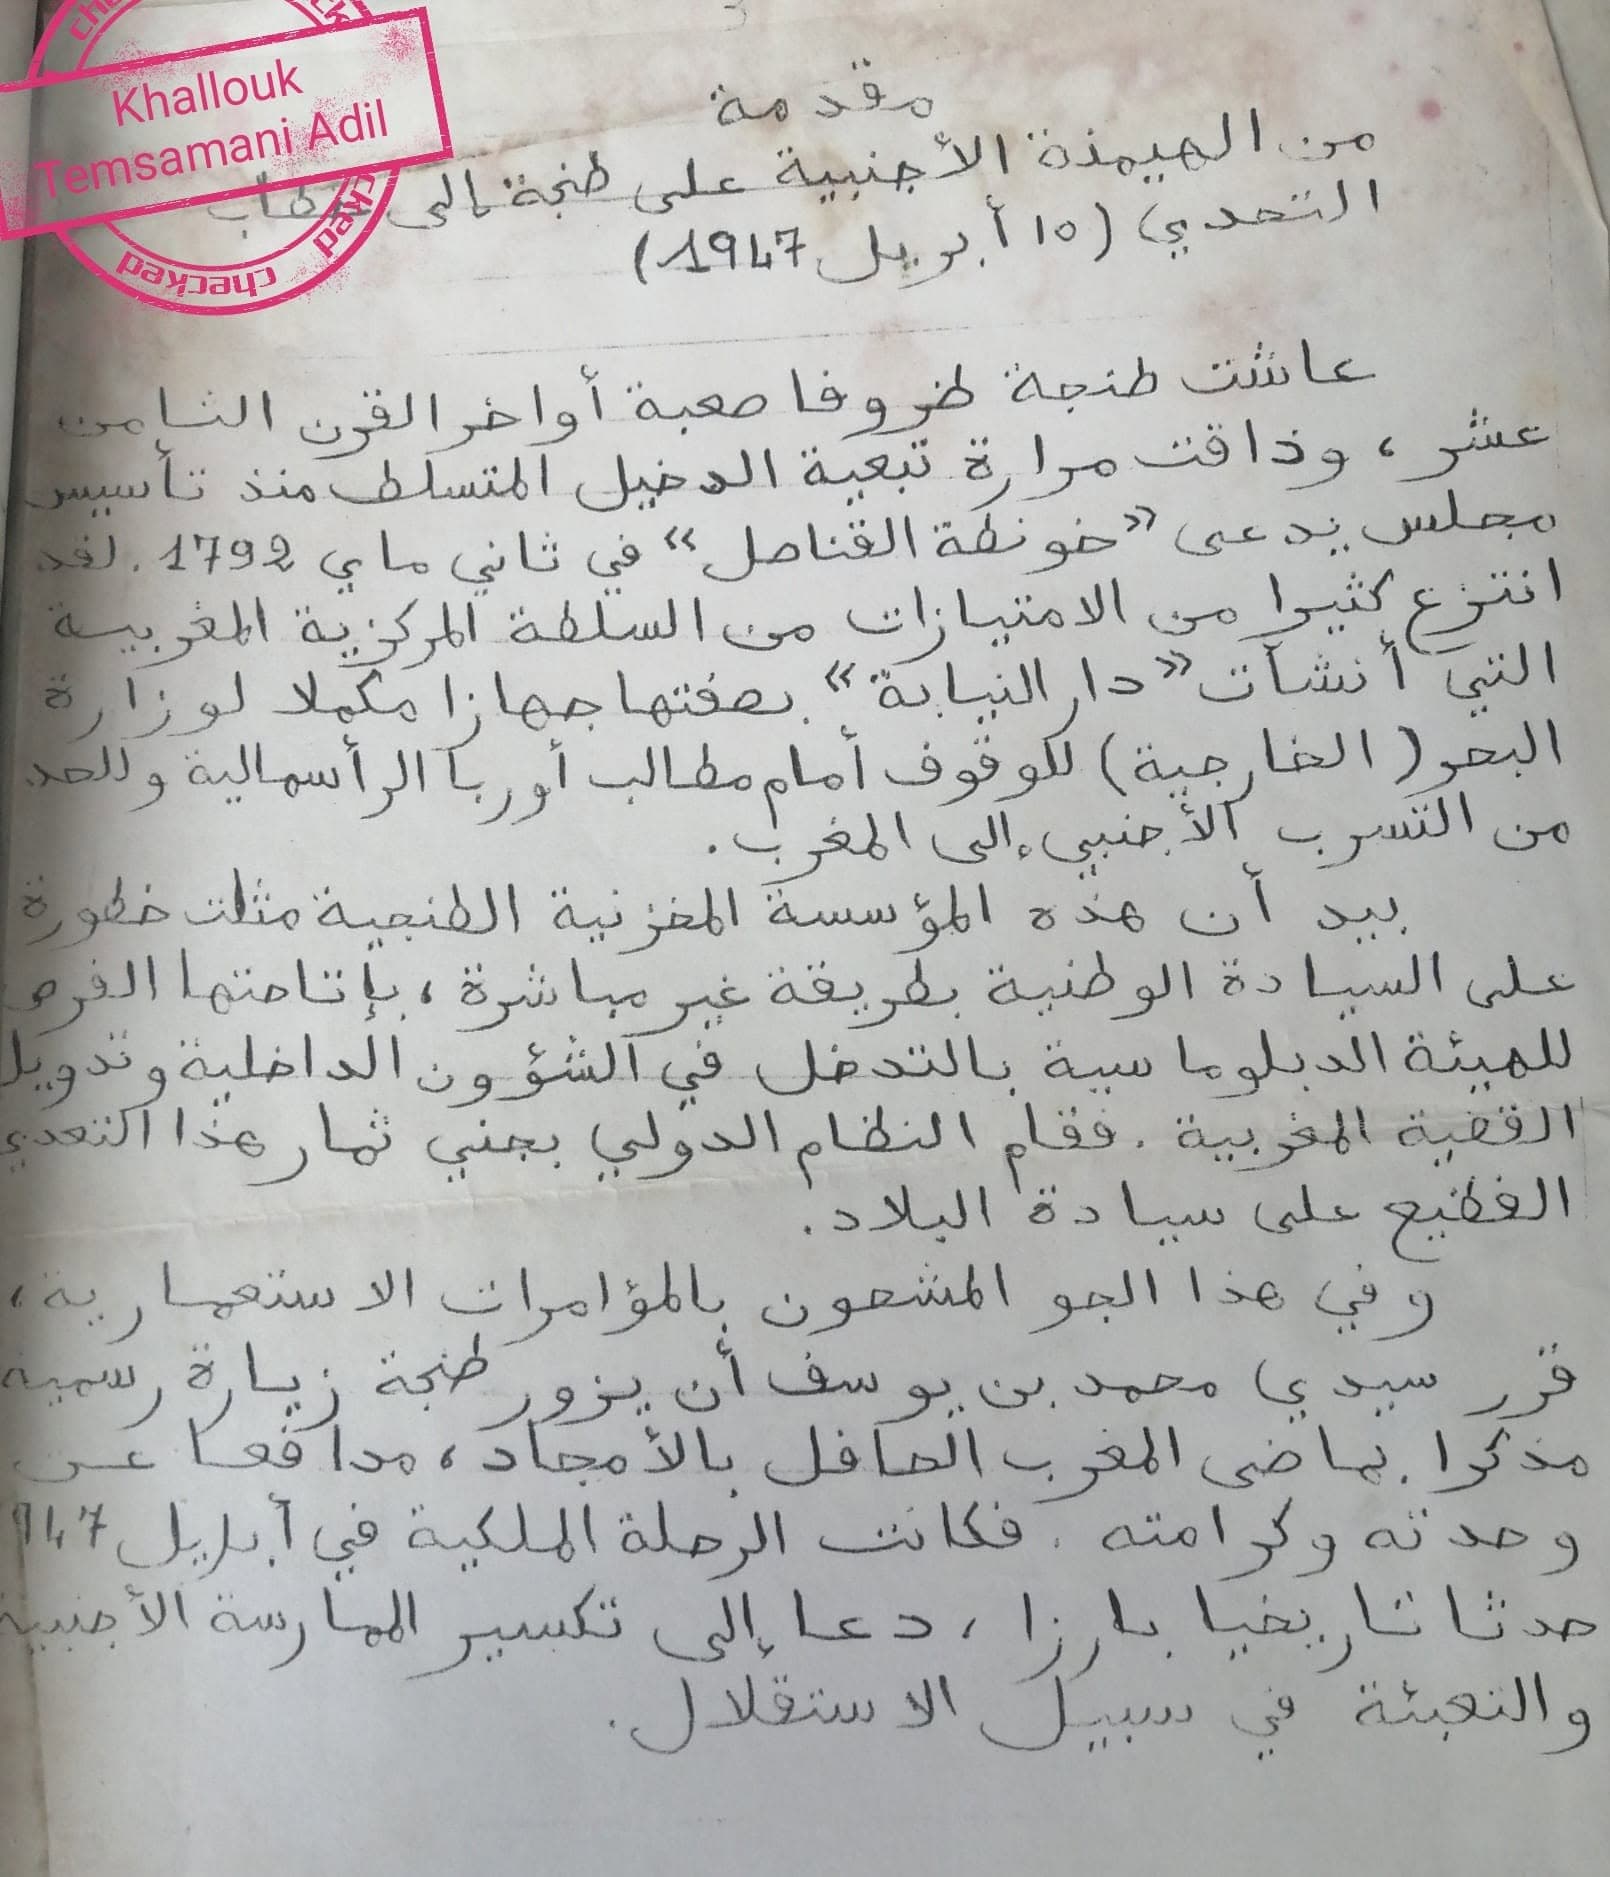 3
Khallouk
Temsamani Adil
checked
مقدمة
من الهيمنة الأجنبية على طنجة إلى خطاب
التحدي (10 أبريل 1947)
عاشت طنجة ظروفا صعبة أواخر القرن الثامن
عشر، وذاقت مرارة تبعية الدخيل المتسلط منذ تأسيس
مجلس يدعى «خونطة القناصل» في ثاني ماي 1792. لقد
انتزع كثيرا من الامتيازات من السلطة المركزية المغربية
التي أنشأت «دار النيابة» بصفتها جهازا مكملا لوزارة
البحر (الخارجية) للوقوف أمام مطالب أوربا الرأسمالية وللحد
من التسرب الأجنبي إلى المغرب.
بيد أن هذه المؤسسة المخزنية الطنجية مثلت خطورة
على السيادة الوطنية بطريقة غير مباشرة، بإتاحتها الفرص
للهيئة الدبلوماسية بالتدخل في الشؤون الداخلية وتدويل
القضية المغربية. فقام النظام الدولي بجني ثمار هذا التعدي
الفظيع على سيادة البلاد.
وفي هذا الجو المشحون بالمؤامرات الاستعمارية،
قرر سيدي محمد بن يوسف أن يزور طنجة زيارة رسمية
مذكرا بماضي المغرب الحافل بالأمجاد، مدافعا عن
وحدته وكرامته. فكانت الرحلة الملكية في أبريل 947
حدثا تاريخيا بارزا، دعا إلى تكسير الممارسة الأجنبية
والتعبئة في سبيل الاستقلال.